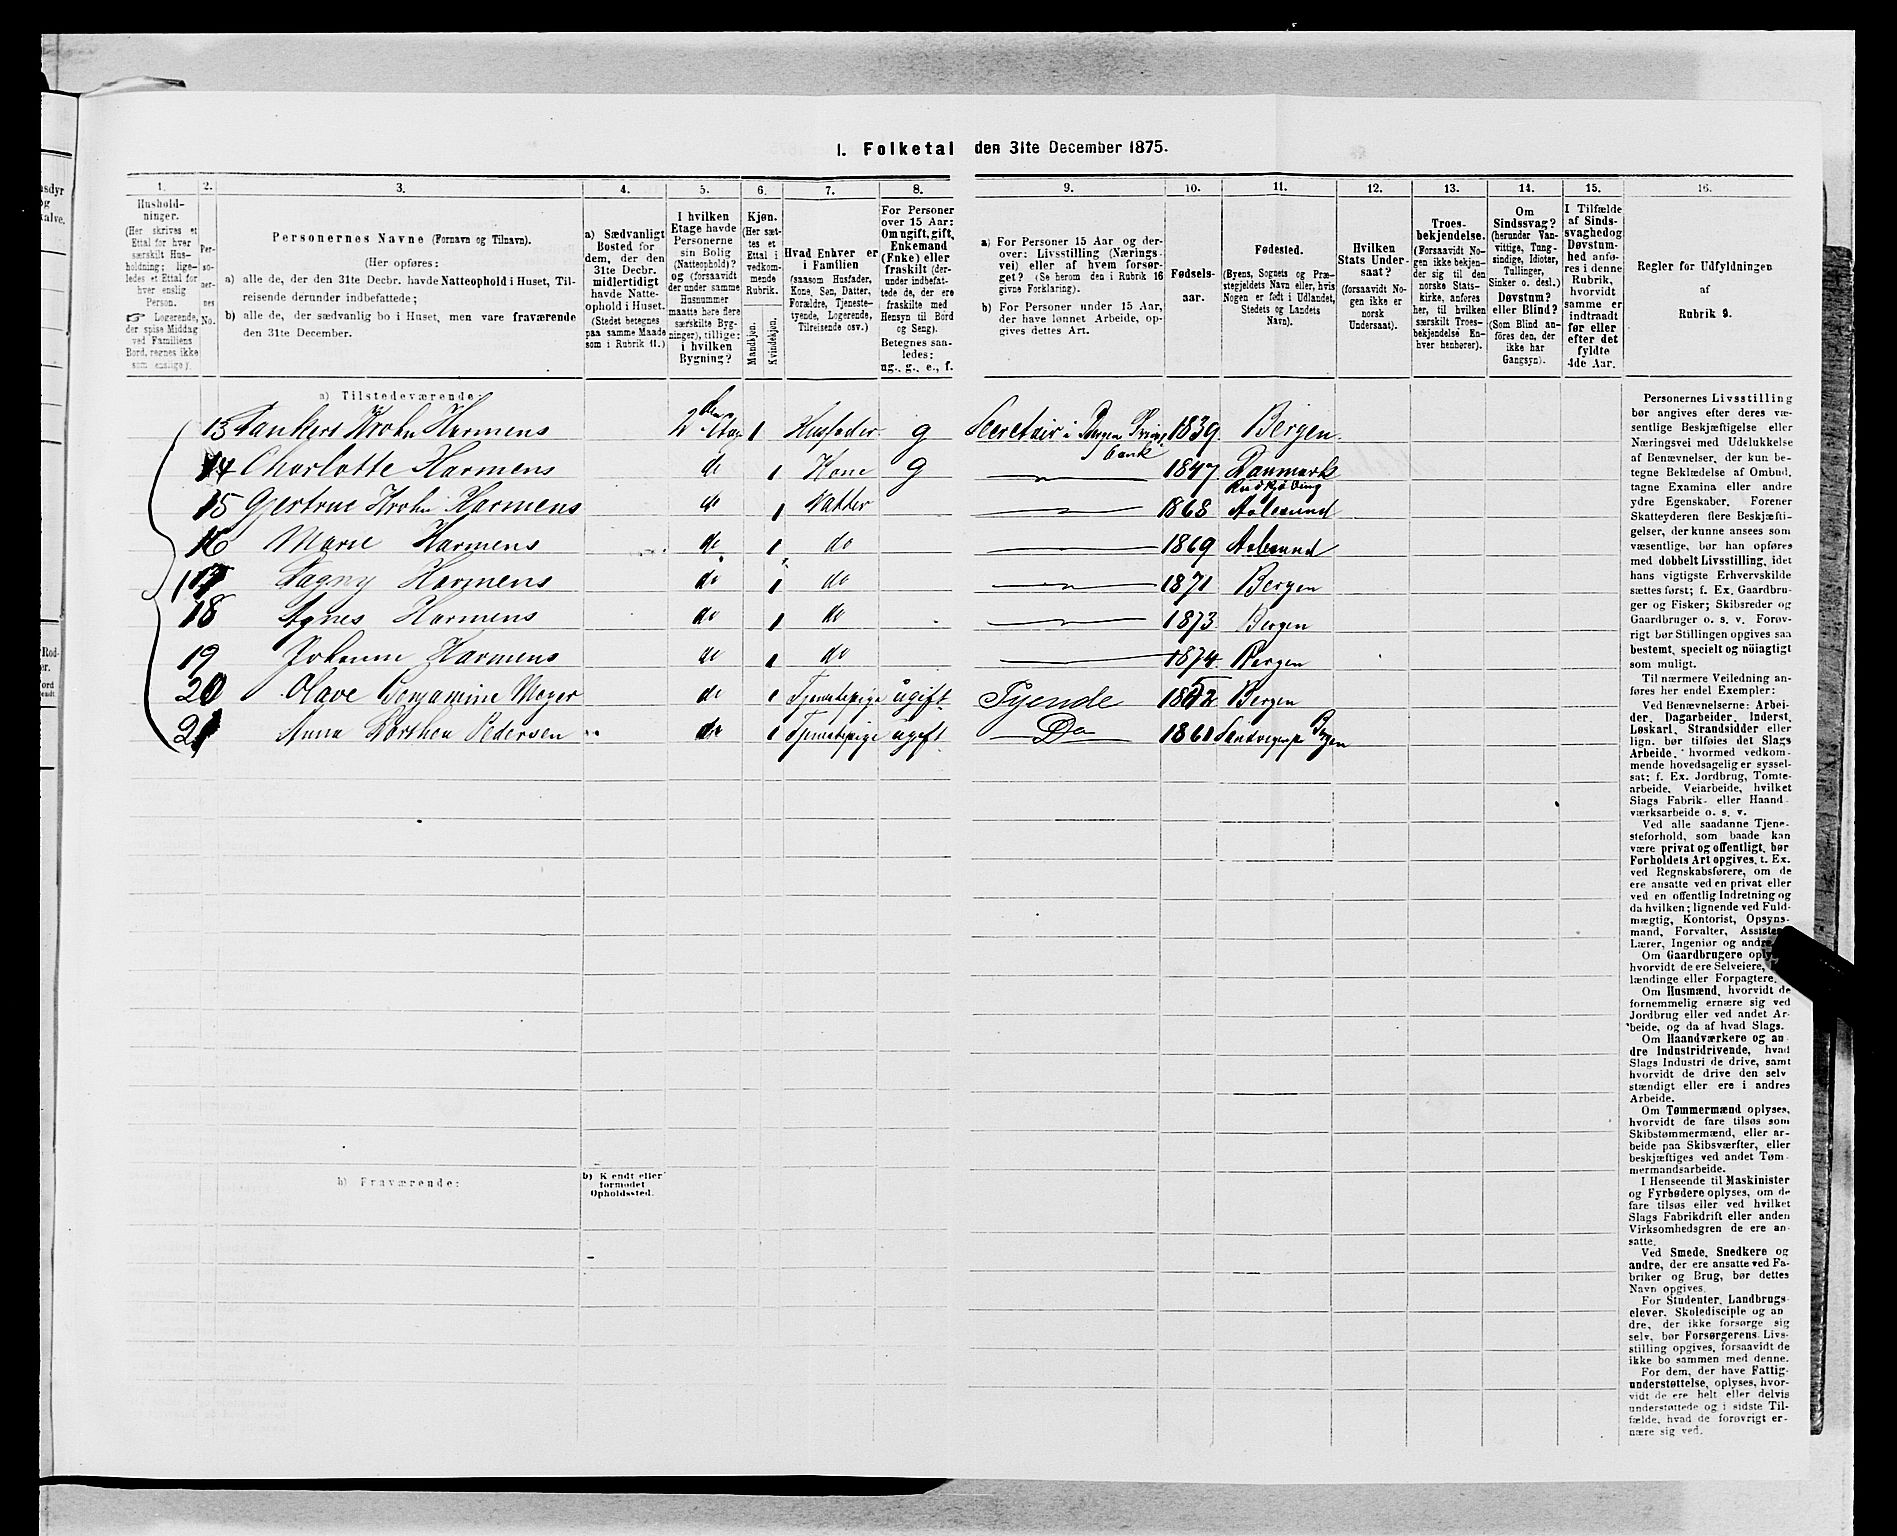 I. Folketal den 31te December 1875.
1. 2. 3. 4. 5. 6. 7. 8. 9. 10. 11. 12. 13. 14. 15. 16.
Hushold-
ninger.
(Her skrives et
Ettal for hver
særskilt Hus-
holdning; lige-
ledes et Ettal for
hver enslig
Person.
☞ Logerende,
der spise Middag
ved Familiens
Bord, regnes ikke
som enslige).
Per-
so-
ner-
nes
No.
Personernes Navne (Fornavn og Tilnavn).
(Her opføres:
a) alle de, der den 31te Decbr. havde Natteophold i Huset, Til-
reisende derunder indbefattede;
b) alle de, der sædvanlig bo i Huset, men vare fraværende
den 31te December.
a) Sædvanligt
Bosted for
dem, der den
31te Decbr.
midlertidigt
havde Natte-
ophold i Huset.
(Stedet betegnes
paa samme Maade
som i Rubrik 11.)
I hvilken
Etage havde
Personerne
sin Bolig
(Natteophold)?
og (forsaavidt
der under samme
Husnummer
maatte høre flere
særskilte Byg-
ninger), tillige:
i hvilken
Bygning?
Kjøn.
(Her sæt-
tes et
Ettal i
vedkom-
mende
Rubrik.
Mandkjøn.
Kvindekjøn.
Hvad Enhver er
i Familien
(saasom Husfader,
Kone, Søn, Datter,
Forældre, Tjeneste-
tyende, Logerende,
Tilreisende osv.)
For Personer
over 15 Aar:
Om ugift, gift,
Enkemand
(Enke) eller
fraskilt (der-
under indbefat-
tede de, der ere
fraskilte med
Hensyn til Bord
og Seng).
Betegnes saa-
ledes:
ug., g., e., f.
a) For Personer 15 Aar og der-
over: Livsstilling (Nærings-
vei) eller af hvem forsør-
get? (Se herom den i Rubrik 16
givne Forklaring).
b) For Personer under 15 Aar,
der have lønnet Arbeide, op-
gives dettes Art.
Fødsels-
aar.
Fødested.
(Byens, Sognets og Præ-
stegjeldets Navn eller, hvis
Nogen er født i Udlandet,
Stedets og Landets
Navn).
Hvilken
Stats Under-
saat?
(forsaavidt No-
gen ikke er
norsk
Undersaat).
Troes-
bekjendelse.
(Forsaavidt No-
gen ikke bekjen-
der sig til den
norske Stats-
kirke, anføres
her, til hvilken
særskilt Troes-
bekjendelse En-
hver henhører).
Om
Sindssvag?
(herunder Van-
vittige, Tung-
sindige, Idioter,
Tullinger,
Sinker o. desl.)
Døvstum?
eller Blind?
(Som Blind an-
føres den, der
ikke har
Gangsyn).
I Tilfælde
af Sinds-
svaghed og
Døvstum-
hed anfø-
res i denne
Rubrik,
hvorvidt
samme er
indtraadt
før eller
efter det
fyldte
4de Aar.
Regler for Udfyldningen
af
Rubrik 9.
a) Tilstedeværende:
13 Dankert Krohn Harmens 2den Etage 1 Husfader g Secretair i Bergens Privatbank 1839 Bergen
14 Charlotte Harmens do 1 Kone g 1847 Danmark Rudkjøbing
15 Gjertrue Krohn Harmens do 1 Datter 1868 Aalesund
16 Marie Harmens do 1 do 1869 Aalesund
17 Dagny Harmens do 1 do 1871 Bergen
18 Agnes Harmens do 1 do 1873 Bergen
19 Johanne Harmens do 1 do 1874 Bergen
20 Olave Benjamine Meyer do 1 Tjenestepige ugift Tyende Bergen
21 Anna Dorthea Pedersen do 1 Tjenestepige ugift Do Bergen
b) Fraværende:
b) Kjendt eller
formodet
Opholdssted.
Personernes Livsstilling
bør angives efter deres væ-
sentlige Beskjæftigelse eller
Næringsvei med Udelukkelse
af Benævnelser, der kun be-
tegne Beklædelse af Ombud,
tagne Examina eller andre
ydre Egenskaber. Forener
Skatteyderen flere Beskjæfti-
gelser, der kunne ansees som
væsentlige, bør han opføres
med dobbelt Livsstilling, idet
hans vigtigste Erhvervskilde
sættes først; f. Ex. Gaardbru-
ger og Fisker; Skibsreder og
Gaardbruger o. s. v. Forøv-
rigt bør Stillingen opgives saa
bestemt, specielt og nöiagtigt
som muligt.
Til nærmere Veiledning an-
føres her endel Exempler:
Ved Benævnelserne: Arbei-
der, Dagarbeider, Inderst,
Løskarl, Strandsidder eller
lign. bør tilføies det Slags
Arbeide, hvormed vedkom-
mende hovedsagelig er syssel-
sat; f. Ex. Jordbrug, Tomte-
arbeide, Veiarbeide, hvilket
Slags Fabrik- eller Haand-
værksarbeide o. s. v.
Ved alle saadanne Tjene-
steforhold, som baade kan
være privat og offentligt, bør
Forholdets Art opgives, t. Ex.
ved Regnskabsførere, om de
ere ansatte ved en privat eller
ved en offentlig Indretning og
da hvilken; lignende ved Fuld-
mægtig, Kontorist, Opsyns-
mand, Forvalter, Assistent,
Lærer, Ingeniør og andre.
Om Gaardbrugere oplyses,
hvorvidt de ere Selveiere,
lændinge eller Forpagtere.
Om Husmænd, hvorvidt de
fornemmelig ernære sig ved
Jordbrug eller ved andet Ar-
beide, og da af hvad Slags.
Om Haandværkere og an-
dre Industridrivende, hvad
Slags Industri de drive, samt
hvorvidt de drive den selv-
stændigt eller ere i andres
Arbeide.
Om Tømmermænd oplyses,
hvorvidt de fare tilsøs som
Skibstømmermænd, eller ar-
beide paa Skibsværfter, eller
beskjæftiges ved andet Tøm-
mermandsarbeide.
I Henseende til Maskinister
og Fyrbødere oplyses, om de
fare tilsøs eller ved hvilket
Slags Fabrikdrift eller anden
Virksomhedsgren de ere an-
satte.
Ved Smede, Snedkere og
andre, der ere ansatte ved Fa-
briker og Brug, bør dettes
Navn opgives.
For Studenter, Landbrugs-
elever, Skoledisciple og an-
dre, der ikke forsørge sig
selv, bør Forsørgerens Livs-
stilling opgives, forsaavidt de
ikke bo sammen med denne.
For dem, der have Fattig-
understøttelse, oplyses, hvor-
vidt de ere helt eller delvis
understøttede og i sidste Til-
fælde, hvad de forøvrigt er-
nære sig ved.